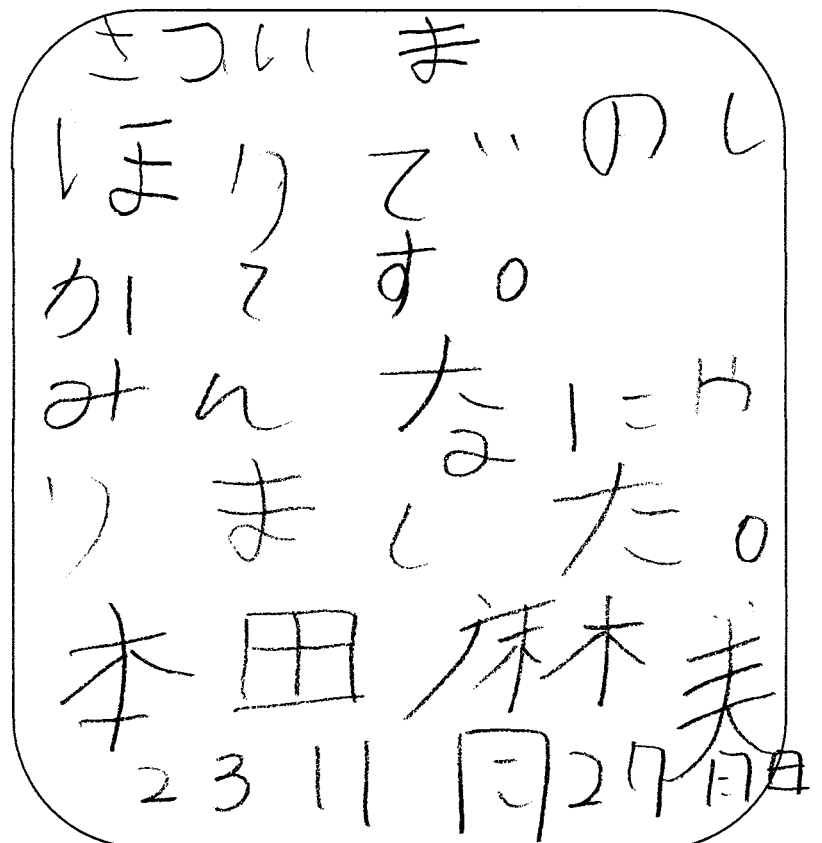 さついま
ほりでのし
かてす。
みんなにや
りました。
本田麻美
2311月27日